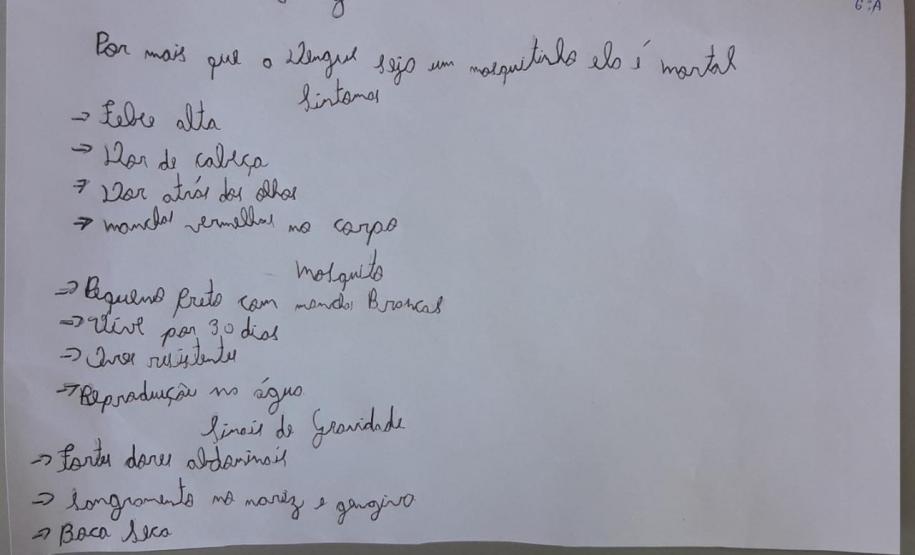 6ºA
Por mais que o Dengue seja um mosquitinho ele é mortal
Sintomas
→ Febre alta
→ Dor de cabeça
→ Dor atrás dos olhos
→ manchas vermelhas no corpo
Mosquito
→ Pequeno Preto com manchas Brancas
→ Vive por 30 dias
→ Ovos resistentes
→ Reprodução na água
Sinais de Gravidade
→ Fortes dores abdominais
→ Sangramento no nariz e gengiva
→ Boca Seca